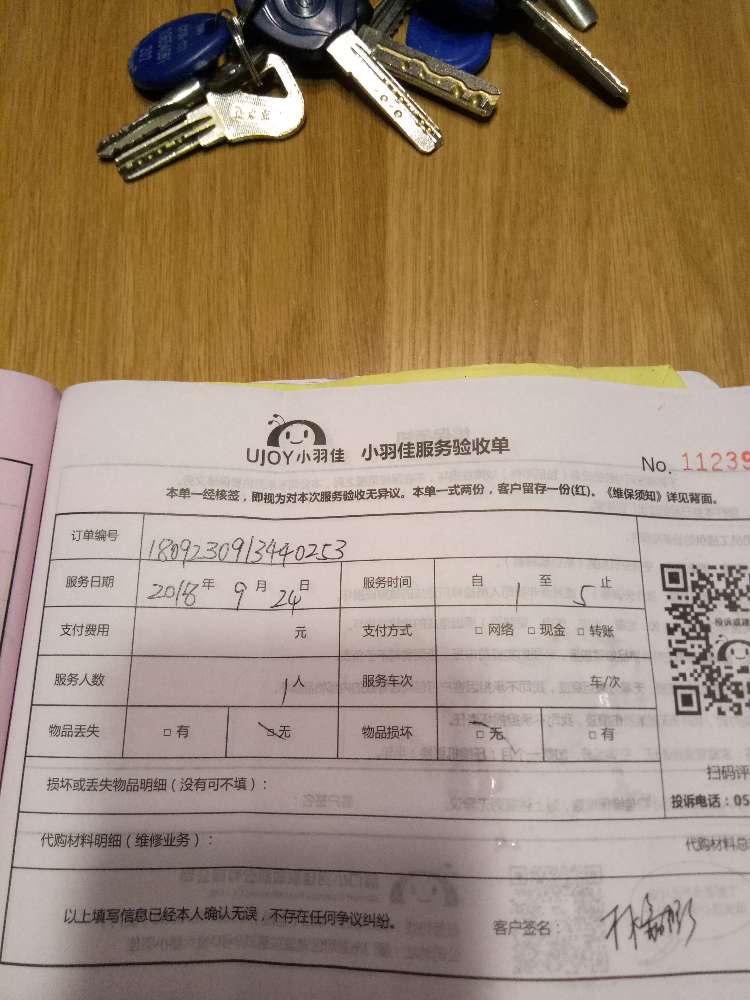 UJOY小羽佳 小羽佳服务验收单
No. 11239
本单一经核签，即视为对本次服务验收无异议。本单一式两份，客户留存一份(红)。《维保须知》详见背面。
订单编号 1809230913440253
服务日期 2018年 9月 24日 服务时间 自 1 至 5 止
支付费用 元 支付方式 □ 网络 □ 现金 □ 转账
服务人数 1人 服务车次 车/次
物品丢失 □ 有 □ 无 物品损坏 □ 无 □ 有
损坏或丢失物品明细（没有可不填）：
扫码评
投诉电话：05
代购材料明细（维修业务）：
代购材料总
以上填写信息已经本人确认无误，不存在任何争议纠纷。 客户签名：